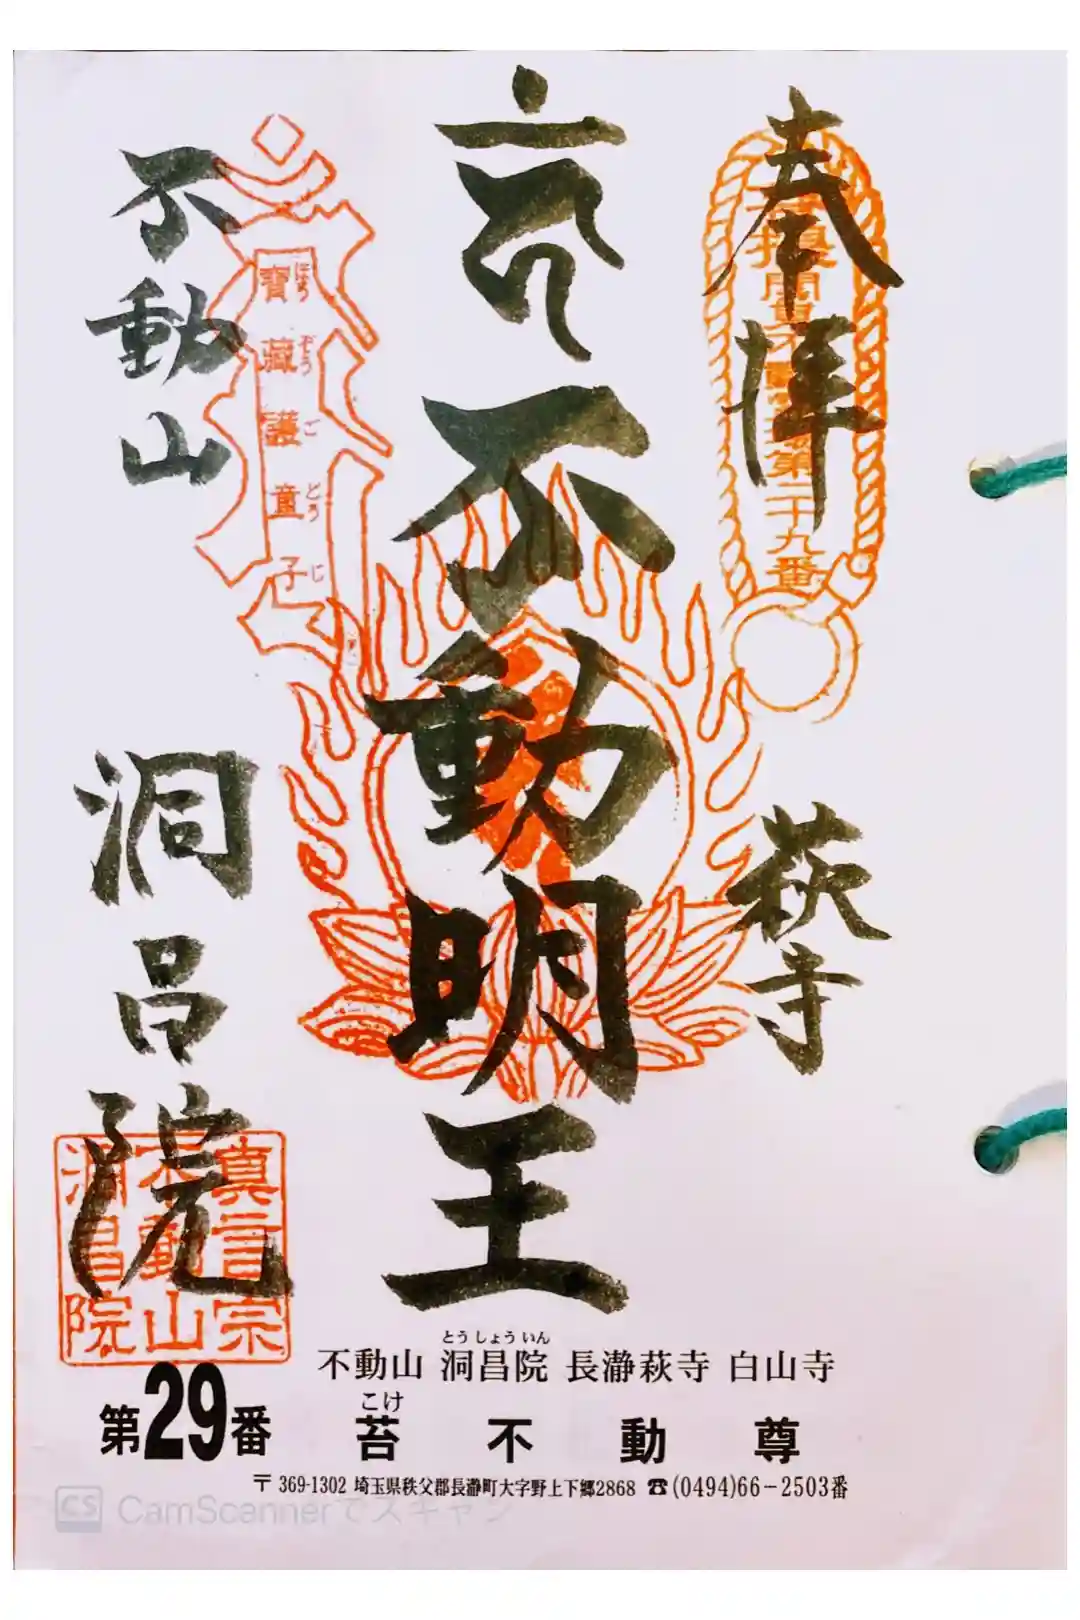 奉拝
萩寺
不動明王
不動山
洞昌院
第二十九番
寶藏護童子
にほうぞうごどうじ
真言宗
不動山
洞昌院
とうしょういん
不動山 洞昌院 長瀞萩寺 白山寺
第29番
こけ
苔不動尊
〒369-1302 埼玉県秩父郡長瀞町大字野上下郷2868 ☎(0494)66-2503番
CS CamScannerでスキャン